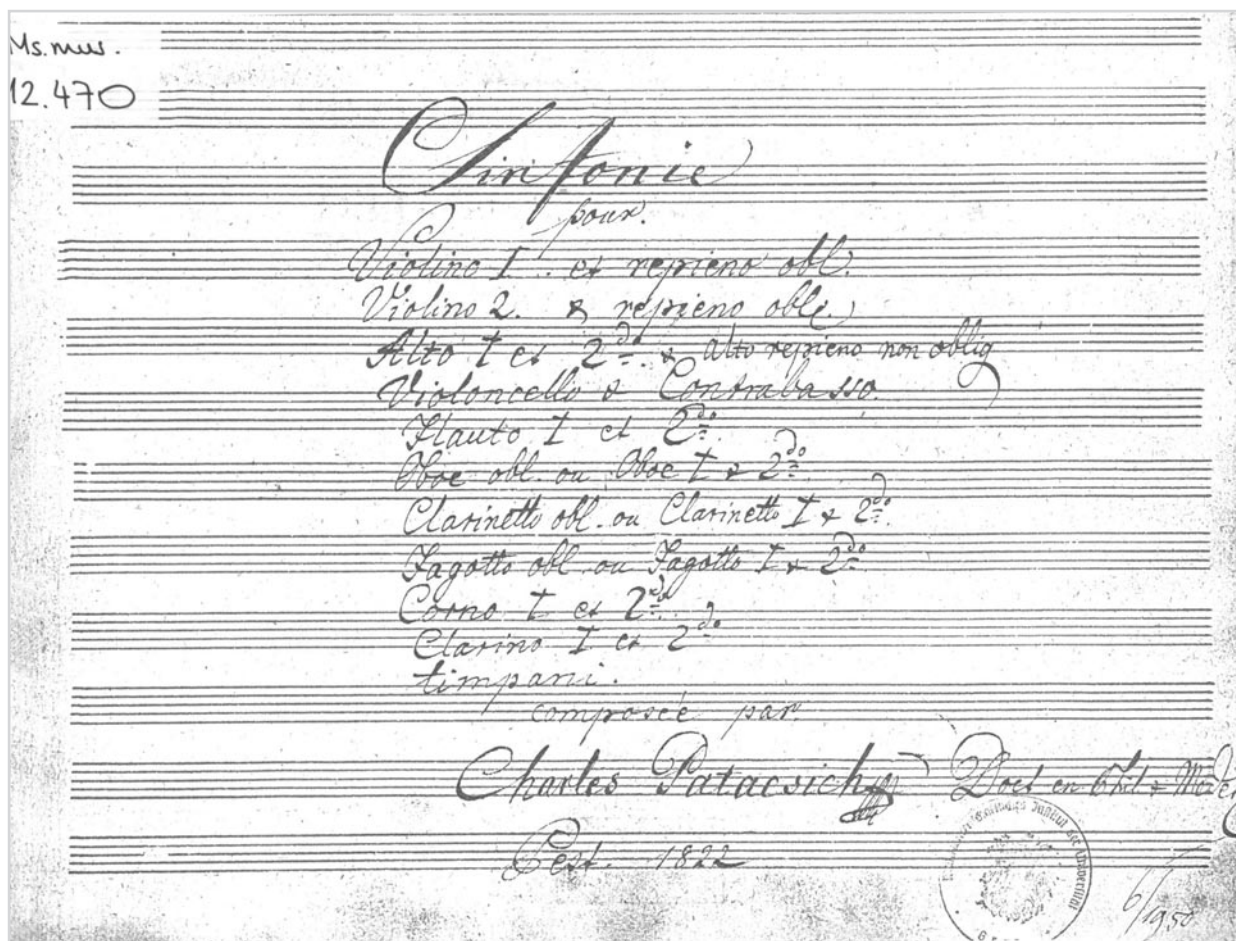 Ms. mus.
12.470
Sinfonie
pour.
Violino I. et repieno obl.
Violino 2. & repieno obl.
Alto I et 2do. & alto repieno non oblig
Violoncello & Contrabasso.
Flauto I et 2do.
Oboe obl. ou Oboe I & 2do.
Clarinetto obl. ou Clarinetto I & 2do.
Fagotto obl. ou Fagotto I & 2do
Corno I et 2do.
Clarino I et 2do
timpani.
composée par
Charles Patacsich Doct en Phil & Mede
Pest. 1822
Institut der Universität
6/1950